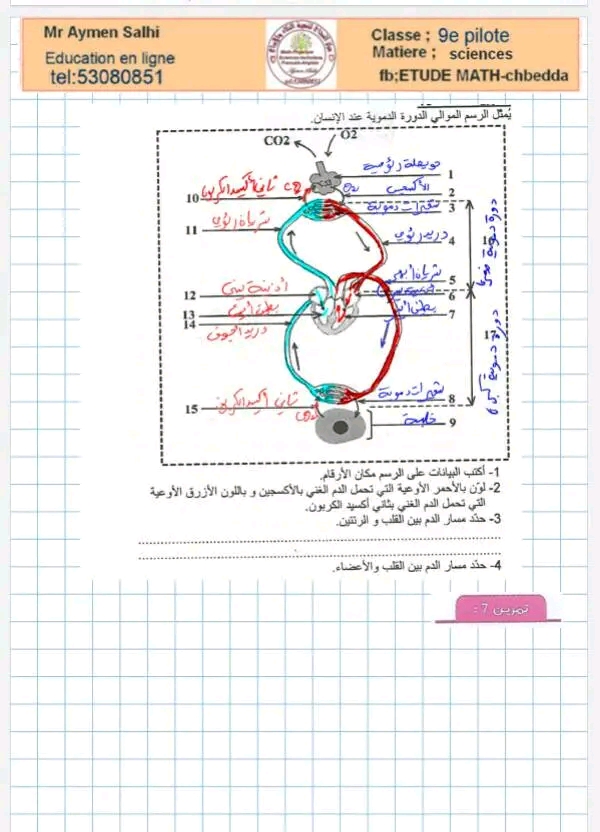 Mr Aymen Salhi
Education en ligne
tel:53080851
Classe ; 9e pilote
Matiere ; sciences
fb;ETUDE MATH-chbedda
يُمثّل الرسم الموالي الدورة الدموية عند الإنسان.
CO2
O2
حويصلة رئوية
1
الأكسجين
2
ثاني أكسيد الكربون
CO2
O2
10
شعيرات دموية
3
شريان رئوي
11
وريد رئوي
4
شريان أبهر
5
أذينة يمنى
12
6
بطين أيمن
13
بطين أيسر
7
وريد أجوف
14
دورة دموية صغرى
دورة دموية كبرى
17
شعيرات دموية
8
ثاني أكسيد الكربون
CO2
15
خلية
9
1- أكتب البيانات على الرسم مكان الأرقام.
2- لوّن بالأحمر الأوعية التي تحمل الدم الغني بالأكسجين و باللون الأزرق الأوعية
التي تحمل الدم الغني بثاني أكسيد الكربون.
3- حدّد مسار الدم بين القلب و الرئتين.
4- حدّد مسار الدم بين القلب والأعضاء.
تمرين 7 :